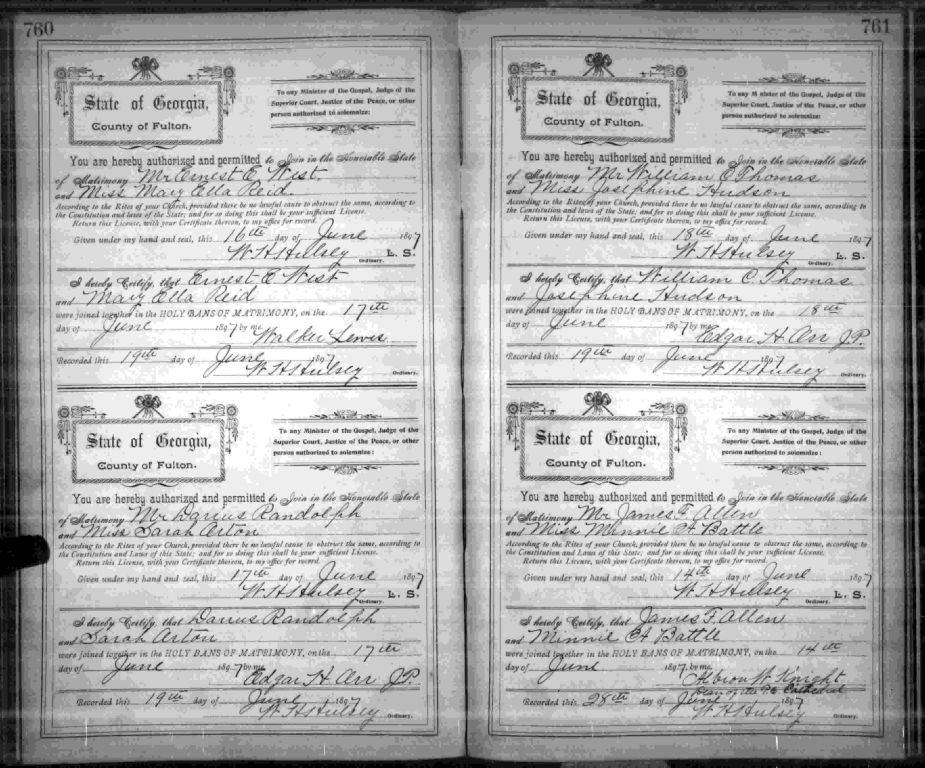 760
State of Georgia,
County of Fulton.
To any Minister of the Gospel, Judge of the
Superior Court, Justice of the Peace, or other
person authorized to solemnize:
You are hereby authorized and permitted to Join in the Honorable State
of Matrimony Mr Ernest E West
and Miss Mary Ella Reid
According to the Rites of your Church, provided there be no lawful cause to obstruct the same, according to
the Constitution and laws of the State; and for so doing this shall be your sufficient License.
Return this License, with your Certificate thereon, to my office for record.
Given under my hand and seal, this 16th day of June 1897
W H Hulsey L. S.
Ordinary.
I hereby Certify, that Ernest E West
and Mary Ella Reid
were joined together in the HOLY BANS OF MATRIMONY, on the 17th
day of June 1897 by me
Walker Lewis
Recorded this 19th day of June 1897
W H Hulsey
Ordinary.
State of Georgia,
County of Fulton.
To any Minister of the Gospel, Judge of the
Superior Court, Justice of the Peace, or other
person authorized to solemnize:
You are hereby authorized and permitted to Join in the Honorable State
of Matrimony Mr Darius Randolph
and Miss Sarah Arton
According to the Rites of your Church, provided there be no lawful cause to obstruct the same, according to
the Constitution and Laws of this State; and for so doing this shall be your sufficient License.
Return this License, with your Certificate thereon, to my office for record.
Given under my hand and seal, this 17th day of June 1897
W H Hulsey L. S.
Ordinary.
I hereby Certify, that Darius Randolph
and Sarah Arton
were joined together in the HOLY BANS OF MATRIMONY, on the 17th
day of June 1897 by me
Edgar H. Orr J.P.
Recorded this 19th day of June 1897
W H Hulsey
Ordinary.
761
State of Georgia,
County of Fulton.
To any Minister of the Gospel, Judge of the
Superior Court, Justice of the Peace, or other
person authorized to solemnize:
You are hereby authorized and permitted to Join in the Honorable State
of Matrimony Mr William C Thomas
and Miss Josephine Hudson
According to the Rites of your Church, provided there be no lawful cause to obstruct the same, according to
the Constitution and laws of the State; and for so doing this shall be your sufficient License.
Return this License, with your Certificate thereon, to my office for record.
Given under my hand and seal, this 18th day of June 1897
W H Hulsey L. S.
Ordinary.
I hereby Certify, that William C. Thomas
and Josephine Hudson
were joined together in the HOLY BANS OF MATRIMONY, on the 18th
day of June 1897 by me
Edgar H. Orr J.P.
Recorded this 19th day of June 1897
W H Hulsey
Ordinary.
State of Georgia,
County of Fulton.
To any Minister of the Gospel, Judge of the
Superior Court, Justice of the Peace, or other
person authorized to solemnize:
You are hereby authorized and permitted to Join in the Honorable State
of Matrimony Mr James F. Allen
and Miss Minnie H Battle
According to the Rites of your Church, provided there be no lawful cause to obstruct the same, according to
the Constitution and Laws of this State; and for so doing this shall be your sufficient License.
Return this License, with your Certificate thereon, to my office for record.
Given under my hand and seal, this 14th day of June 1897
W H Hulsey L. S.
Ordinary.
I hereby Certify, that James F. Allen
and Minnie H Battle
were joined together in the HOLY BANS OF MATRIMONY, on the 14th
day of June 1897, by me.
Albion W. Knight
Dean of the P.E. Cathedral
Recorded this 28th day of June 1897
W H Hulsey
Ordinary.